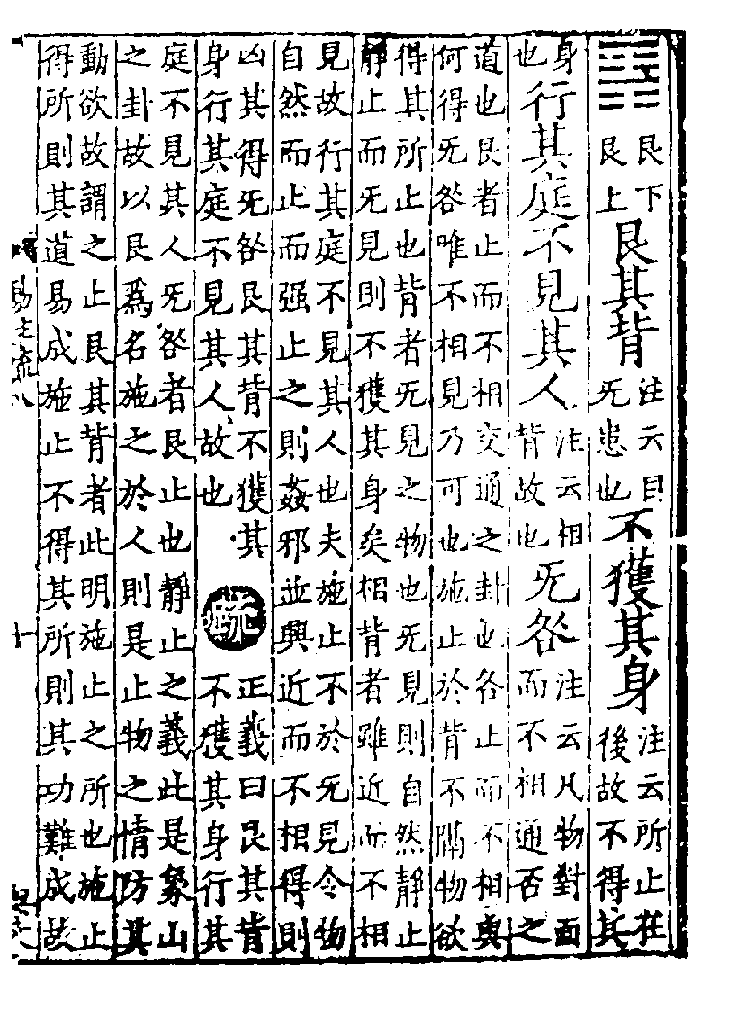 ䷳艮下艮上艮其背注云目无患也不獲其身注云所止在後故不得其
身也行其庭不見其人注云相背故也无咎注云凡物對面而不相通否之
道也艮者止而不相交通之卦也各止而不相與
何得无咎唯不相見乃可也施止於背不隔物欲
得其所止也背者无見之物也无見則自然靜止
靜止而无見則不獲其身矣相背者雖近而不相
見故行其庭不見其人也夫施止不於无見令物
自然而止而强止之則姦邪並興近而不相得則
凶其得无咎艮其背不獲其
身行其庭不見其人故也
疏
正義曰艮其背
不獲其身行其
庭不見其人无咎者艮止也靜止之義此是象山
之卦故以艮爲名施之於人則是止物之情防其
動欲故謂之止艮其背者此明施止之所也施止
得所則其道易成施止不得其所則其功難成故
十